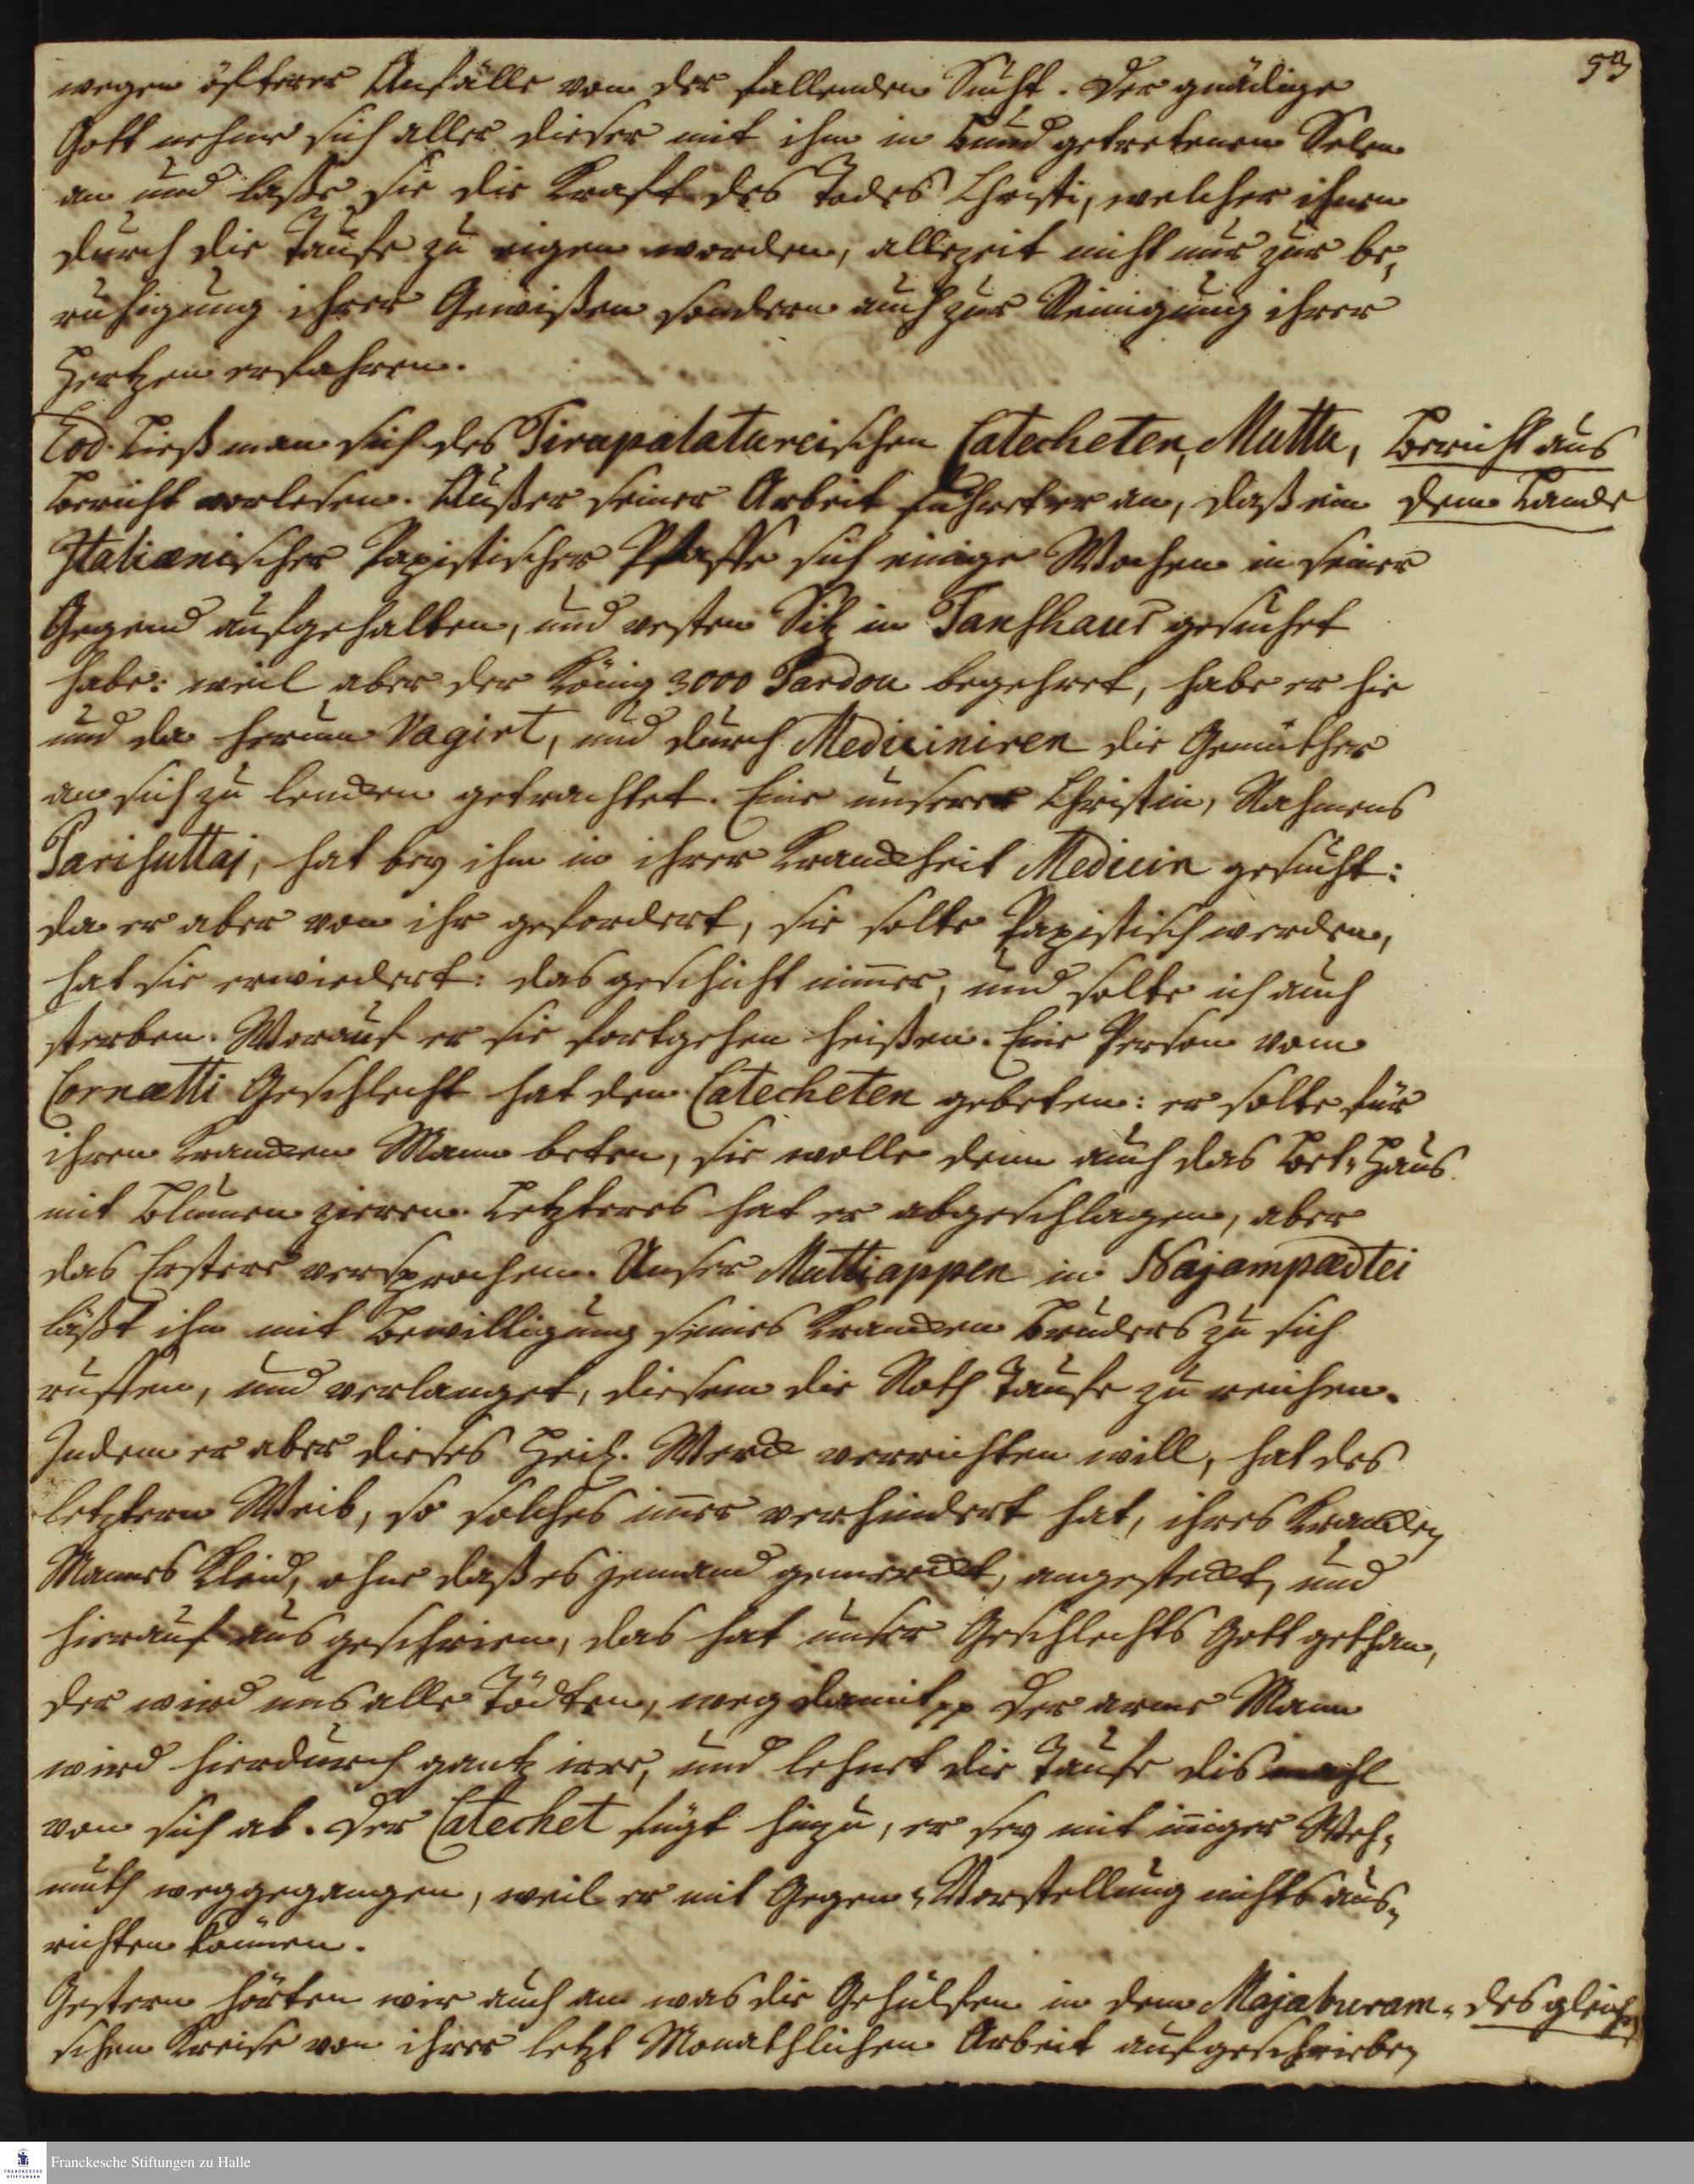 53
wegen öfterer Anfälle von der fallenden Sucht. Der gnädige
Gott nehme sich aller dieser mit ihm in Bund getretenen Selen
an und laße sie die Kraft des Todes Christi, welcher ihnen
durch die Taufe zu eigen worden, allezeit nicht nur zur be,
ruhigung ihrer Gewißen sondern auch zur Reinigung ihrer
Hertzen erfahren.
Eod. ließ man sich des Tirupalatureischen Catecheten, Muttu,
Bericht aus
Bericht vorlesen. Außer seiner Arbeit führet er an, daß ein
dem Lande
Italiænischer Papistischer Pfaffe sich einige Wochen in seiner
Gegend aufgehalten, und vesten Sitz in Tanshaur gesuchet
habe: weil aber der König 3000 Pardou begehret, habe er hie
und da herum Vagirt, und durch Mediciniren die Gemüther
an sich zu lencken getrachtet. Eine unserer Christin, Nahmens
Parisuttaj, hat bey ihm in ihrer Kranckheit Medicin gesucht:
da er aber von ihr gefordert, sie solte Papistisch werden,
hat sie erwiedert: das geschicht nimer, und solte ich auch
sterben. Worauf er sie fortgehen heißen. Eine Person vom
Cornatti Geschlecht hat den Catecheten gebeten: er solte für
ihren Krancken Mann beten, sie wolle denn auch das Bet-Haus
mit Blumen zieren. Letzteres hat er abgeschlagen, aber
das Erstere versprochen. Unser Muttiappen in Najampædtei
läßt ihn mit Bewilligung seines Krancken Bruders zu sich
ruffen, und verlanget, diesem die Noth Taufe zu reichen.
Indem er aber dieses Heil. Werck verrichten will, hat des
letztern Weib, so solches imer verhindert hat, ihres Krancken
Mannes Kleid, ohne daß es jemand gemerckt, angesteckt, und
hierauf ausgeschrien, das hat unser Geschlechts Gott gethan,
der wird uns alle Tödten, weg damit pp Der arme Mann
wird hierdurch gantz irre, und lehnet die Taufe dis mahl
von sich ab. Der Catechet fügt hinzu, er sey mit iniger Weh,
muth weggegangen, weil er mit Gegen-Vorstellung nichts aus,
richten können.
Gestern hörten wir auch an was die Gehülfen in dem Majaburam-
des gleichen
schen Kreise von ihrer letzt Monathlichen Arbeit aufgeschrieben
Franckesche Stiftungen zu Halle
FRANCKESCHE
STIFTUNGEN